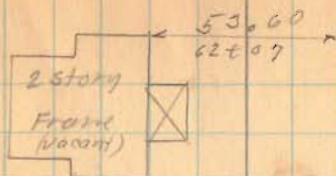 53.60
62+07
2 Story
Frame
(vacant)